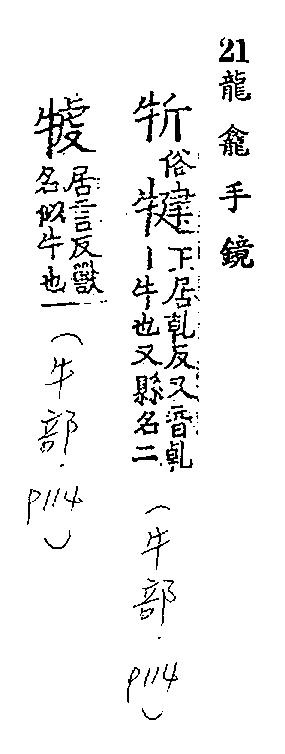 21龍龕手鏡
㸫俗犍下居乹反又音乹丨牛也又縣名二(牛部.P114)
居言反獸名似牛也(牛部.P114)